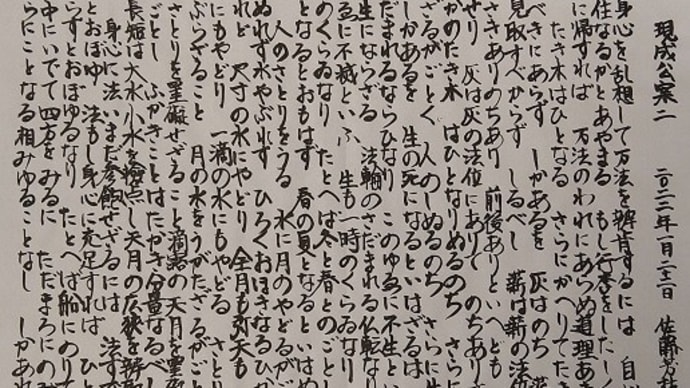 現成公案二 二〇二二年一月二十二日 佐藤
身心を乱想して万法を辨肯するには 自
住なるかとあやまる もし行李をしたし
に帰すれば 万法のわれにあらぬ道理あ
たき木はひとなる さらにかへりてた
べきにあらず しかあるを 灰はのち 薪
見取すべからず しるべし 薪は薪の法
さきありのちあり 前後ありといへども
せり 灰は灰の法位にありて のちあり
かのたき木 はひとなりぬるのち さら
ざるがごとく 人のしぬるのち さらに生
しかあるを 生の死になるといはざるは
だまれるならひなり このゆゑに不生とい
生にならざる 法輪のさだまれる仏転なり
ゑに不滅といふ 生も一時のくらゐなり
のくらゐなり たとへば冬と春とのごとし
となるとおもはず 春の夏となるといはぬ
人のさとりをうる 水に月のやどるがご
ぬれず水やぶれず ひろくおほきなるひか
れど 尺寸の水にやどり 全月も弥天も
にもやどり 一滴の水にもやどる さとり
ぶらざること 月の水をうがたざるがごと
さとりを罣礙せざること滴露の天月を罣礙
ごとし ふかきことはたかき分量なるべ
長短は大水小水を検点し天月の広狭を辨取
身心に法いまだ参飽せざるには 法す
とおぼゆ 法もし身心に充足すれば ひと
らずとおぼゆるなり たとへば船にのりて
中にいでて四方をみるに ただまろにのみ
らにことなる相みゆることなし しかあれ